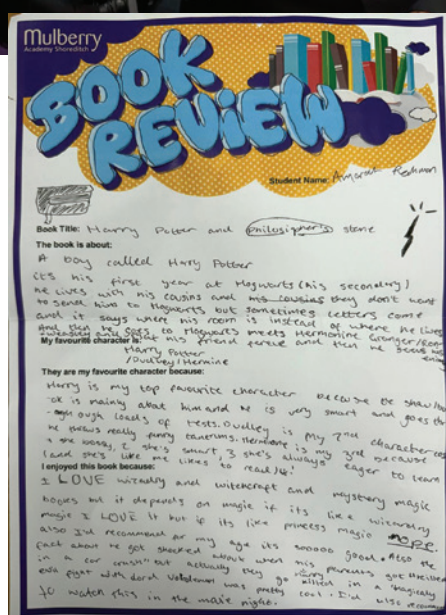 Mulberry
Academy Shoreditch
BOOK
REVIEW
Student Name:
Book Title: Harry Potter and philosipher's stone
The book is about:
A boy called Harry Potter
its his first year at Hogwarts (his secondary)
he lives with his cousins and his cousins they don't want
to send him to Hogwarts but sometimes letters come
and it says where his room is instead of where he lives
And then he goes to Hogwarts meets Hermoine Granger/Ron
weasley and his friend and then he
My favourite character is:
Harry Potter
/Dudley/Hermine
They are my favourite character because:
Harry is my top favourite character because
is mainly about him and he is very smart and goes thr
ough loads of tests. Dudley is my 2nd character
he throws really funny tantrums. Hermoine is my 3rd because
she bossy, 2 she's smart 3 she's always eager to learn
and she's like me likes to read
I enjoyed this book because:
I LOVE wizardry and witchcraft and mystery magic
books but it depends on magic if its like wizardry
magic I LOVE it but if its like princess magic nope.
also I'd recommend for my age its sooooo good. Also the
fact about he got shocked about when his parents got
in a car crash" but actually they got killed in a magically
fight with lord Voldemort was pretty cool. I'd also
to watch this in the movie night.